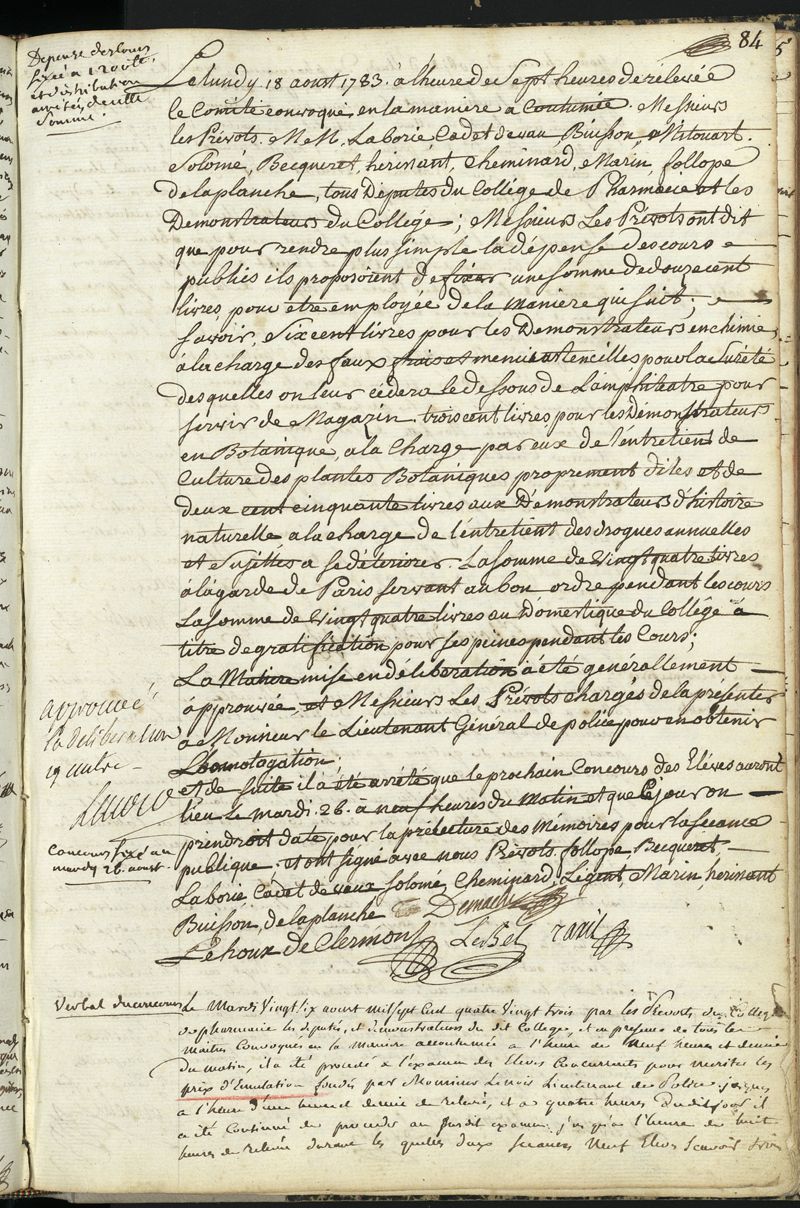 84
Depense des Cours
fixée a 1200 lt.
et distribution
arretée de cette
Somme.
Le lundy 18 aoust 1783. à l'heure de Sept heures de relevée
le Comité convoqué, en la maniere a Coutumée. Messieurs
les Prévots. M.M. Laborie, Cadet devau, Buisson, Mitouart.
Solomé, Becqueret, hérissant, Cheminard, Marin, follope
Delaplanche, tous Députés du Collége de Pharmacie et les
Demonstrateurs du Collége; Messieurs Les Prévots ont dit
que pour rendre plus simple la dépense des cours
publics ils proposoient de fixer une somme de douze cent
livres, pour etre employée de la maniere qui suit;
savoir, Six cent livres pour les Demonstrateurs en chimie
à la charge des faux frais et menus ustencilles pour la Sureté
desquelles on leur cédera le dessous de l'amphiteatre pour
servir de Magazin. trois cent livres pour les Démonstrateurs
en Botanique, a la Charge par eux de l'entretien de
Culture des plantes Botaniques proprement dites et de
deux cent cinquante livres aux Démonstrateurs d'histoire
naturelle a la charge de l'entretient des drogues annuelles
et Sujettes a se déteriorer. La somme de Vingt quatre livres
à la garde de Paris servant au bon ordre pendant les cours
La somme de Vingt quatre livres au Domestique du Collége à
titre de gratification pour ses peines pendant les Cours;
La Matiere mise en déliberation a été générallement
approuvée, et Messieurs Les Prévots chargés de la présenter
a Monsieur le Lieutenant Général de police pour en obtenir
L'homologation.
approuvé
la deliberation
Lenoir
et de suite il a été arrété que le prochain Concours des Eléves auront
lieu le mardi 26. à neuf heures du Matin et que Ce jour on
prendroit date pour la prélecture des Mémoires pour la Seance
publique. et ont signé avec nous Prévots. follope, Becqueret,
Laborie, Cadet de vaux, Solomé, Cheminard, Marin, hérissant
Buisson, de la planche Demachy
Concours fixé au
mardy 26. aoust.
Lehoux de Clermont LeBel
Verbal du concours
Le Mardi Vingt Six aoust mil Sept Cent quatre Vingt trois par les Prevots du College
de pharmacie les deputés, et demonstrateurs du dit College, et en presence de tous les
Maitres Convoqués en la Maniere accoutumée a l'heure de Neuf heures et demie
du matin, il a été procedé a l'examen des Eleves Concurrents pour meriter les
prix d'Emulation fondés par Monsieur Lenoir Lieutenant de Police jusques
a l'heure d'une heure et demie de relevée, et a quatre heures du dit jour il
a été Continué de proceder au susdit examen jusqu'a l'heure de huit
heures de relevée durant les quelles deux seances Neuf Eleves Scavoir trois